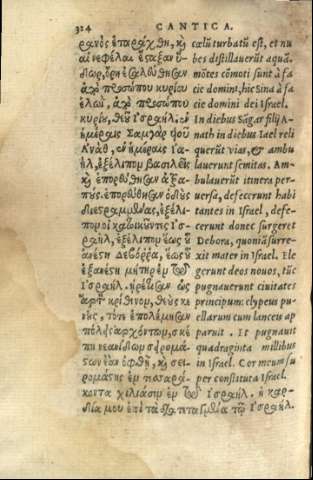 324 CANTICA.
ρανὸς ἐταράχθη, καὶ
αἱ νεφέλαι ἔσταξαν ὕ
δωρ, ὄρη ἐσαλεύθησαν
ἀπὸ προσώπου κυρίου
ἐλωὶ, ἀπὸ προσώπου
κυρίου, θεοῦ Ἰσραήλ. ἐν
ἡμέραις Σαμγὰρ ὑιοῦ
Ἀνὰθ, ἐν ἡμέραις Ἰα-
ὴλ, ἐξέλιπον βασιλεῖς
καὶ ἐπορεύθησαν ἀτρα-
πούς. ἐπορεύθησαν ὁδοὺς
διεστραμμένας, ἐξέλι-
πον οἱ κατοικοῦντες Ἰσ-
ραὴλ, ἐξέλιπον ἕως οὗ
ἀνέστη Δεβόρρα, ἕως οὗ
ἐξανέστη μήτηρ ἐν τῷ
Ἰσραήλ. ᾑρέτισαν ὡς
ἄρτον κρίθινον, θεοὺς κε-
νοὺς, τότε ἐπολέμησαν
πόλεις ἀρχόντων, σκέ
πη νεανίδων σιρομα-
στῶν ἐὰν ὀφθῇ, καὶ σει-
ρομάστης ἐν τεσσαρά-
κοντα χιλιάσιν ἐν τῷ Ἰσραήλ. ἡ καρ-
δία μου ἐπὶ τὰ διατεταγμένα τῷ Ἰσραήλ.
cælũ turbatũ est, et nu
bes distillauerũt aquã.
mõtes cõmoti sunt à fa
cie domini, hic Sina à fa
cie domini dei Israel.
In diebus Sãgar filij A-
nath in diebus Iael reli
querũt vias, & ambu
lauerunt semitas. Am-
bulauerũt itinera per-
uersa, defecerunt habi
tantes in Israel, defe-
cerunt donec surgeret
Debora, quoniã surre-
xit mater in Israel. Ele
gerunt deos nouos, tũc
pugnauerunt ciuitates
principum: clypeus pu-
ellarum cum lanceis ap
paruit. Et pugnauit
quadraginta millibus
in Israel. Cor meum su
per constituta Israel.